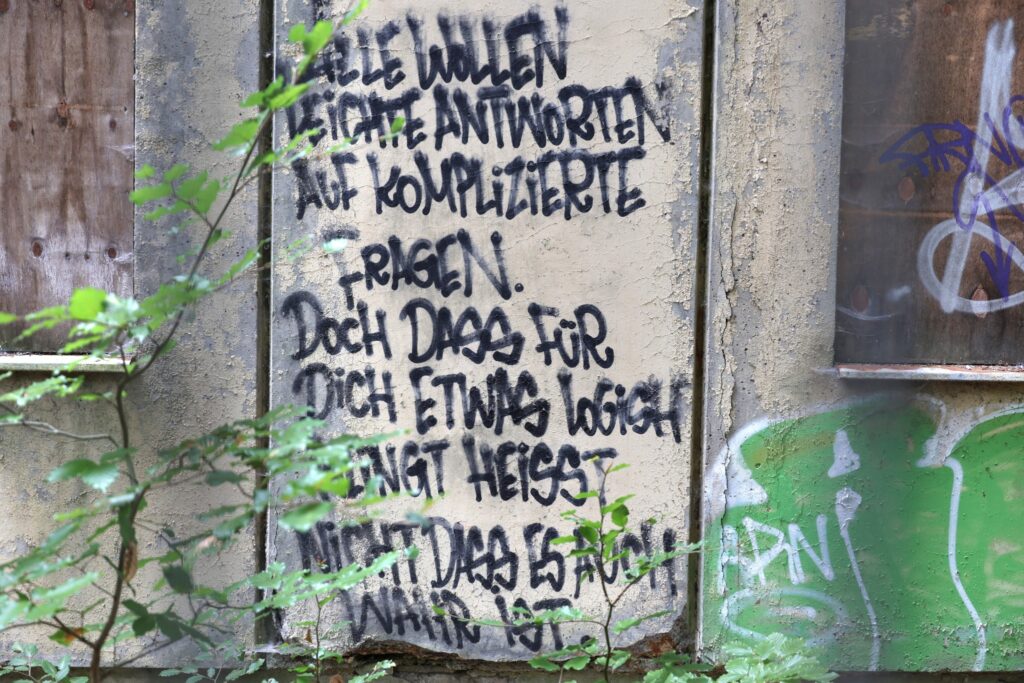 ALLE WOLLEN
LEICHTE ANTWORTEN
AUF KOMPLIZIERTE
FRAGEN.
DOCH DASS FÜR
DICH ETWAS LOGISH
KLINGT HEISST
NICHT DASS ES AUCH
WAHR IST.
ADN